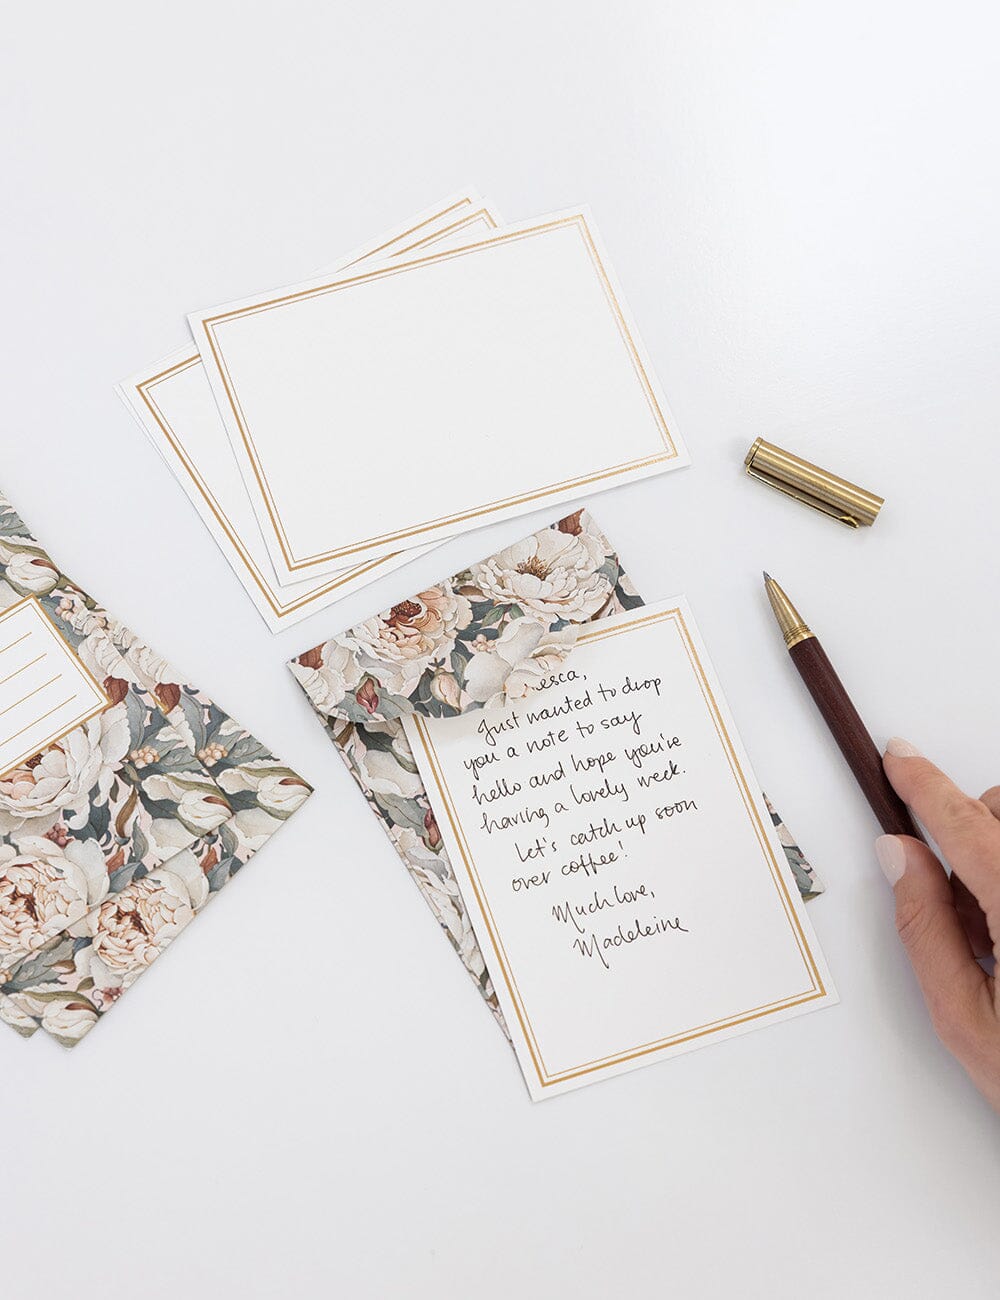 esca,
Just wanted to drop
you a note to say
hello and hope you're
having a lovely week.
Let's catch up soon
over coffee!
Much love,
Madeleine